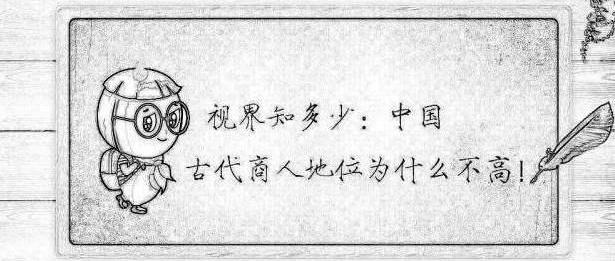 视界知多少：中国
古代商人地位为什么不高!